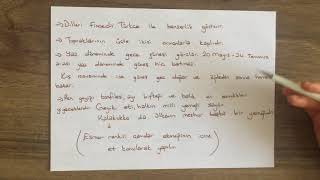 → Dilleri Fincedir. Türkçe ile benzerlik gösterir.
→ Topraklarının üçte ikisi ormanlarla kaplıdır.
→ Yaz döneminde gece güneşi görülür. 20 Mayıs-24 Temmuz
arası yaz döneminde güneş hiç batmaz.
Kış mevsiminde ise güneş geç doğar ve öğleden sonra hemen
batar.
→ Ren geyiği
yiyecekleridir. Geyik eti, halkın milli yemeği sayılır.
Kalakukko da Finlerin meşhur başka bir yemeğidir.
Esmer renkli çavdar ekmeğinin içine
et konularak yapılır.